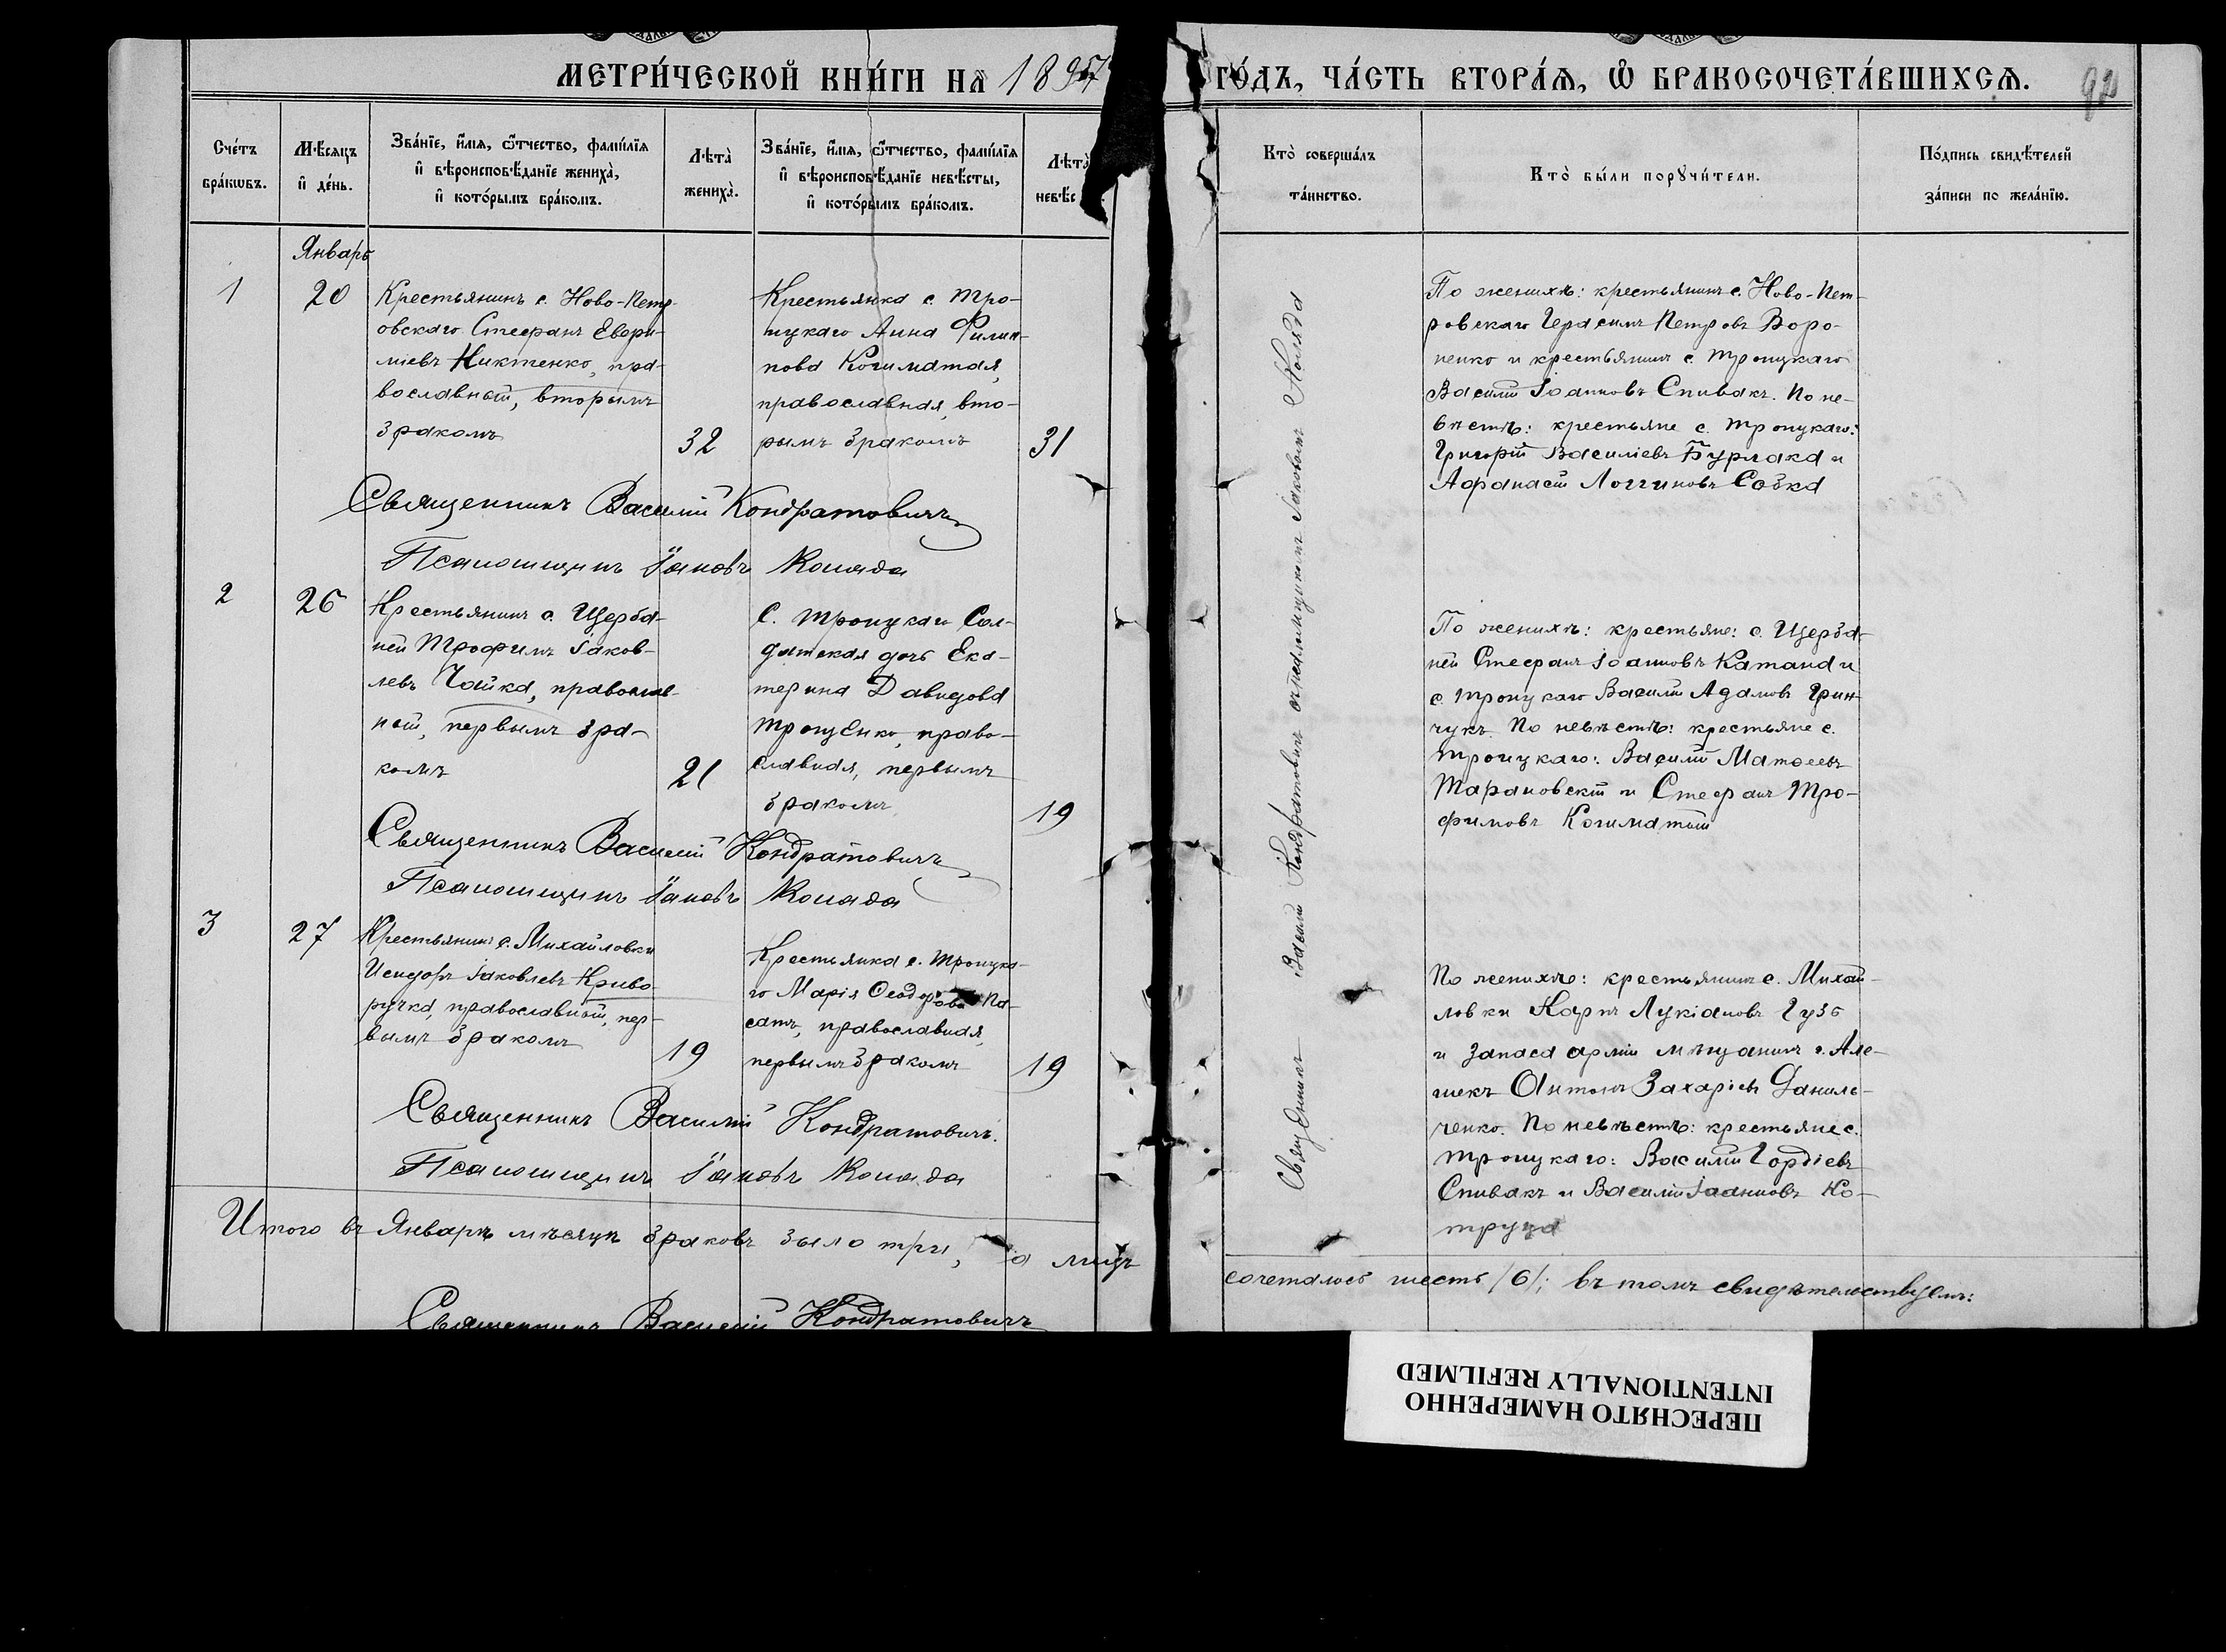 МЕТРИ́ЧЕСКОЙ КНИ́ГИ НА 1895
ГО́ДЪ, ЧА́СТЬ ВТОРА́Я, Ѿ БРАКОСОЧЕТА́ВШИХСЯ.
Сче́тъ бра́кωвъ.
Мѣ́сяцъ и де́нь.
Зва́нїе, и́мя, ѻ́тчество, фами́лїя и вѣроисповѣ́данїе жениха̀, и кото́рымъ бра́комъ.
Лѣта̀ жениха̀.
Зва́нїе, и́мя, ѻ́тчество, фами́лїя и вѣроисповѣ́данїе невѣ́сты, и кото́рымъ бра́комъ.
Лѣта̀ невѣс
Кто̀ соверша́лъ та́инство.
Кто̀ бы́ли поручи́тели.
По́дпись свидѣ́телей за́писи по жела́нїю.
Январь
1
20
Крестьянинъ с. Ново-Петр-
овскаго Стефанъ Евфи-
міевъ Никтенко, пра-
вославный, вторымъ
бракомъ
32
Крестьянка с. Тро-
ицкаго Анна Филип-
пова Кошматая,
православная, вто-
рымъ бракомъ
31
По женихѣ: крестьянинъ с. Ново-Пет-
ровскаго Герасимъ Петровъ Воро-
ненко и крестьянинъ с. Троицкаго
Василій Іоанновъ Спивакъ. По не-
вѣстѣ: крестьяне с. Троицкаго:
Григорій Василіевъ Бурлака и
Афанасій Логгиновъ Собка
Священникъ Василій Кондратовичъ
Псаломщикъ Іаковъ Коляда
2
26
Крестьянинъ с. Щерба-
ней Трофимъ Іаков-
левъ Чайка, православ-
ный, первымъ бра-
комъ
21
С. Троицкаго Сол-
датская дочь Ека-
терина Давидова
Троценко, право-
славная, первымъ
бракомъ
19
По женихѣ: крестьяне: с. Щерба-
ней Стефанъ Іоанновъ Катана и
с. Троицкаго Василій Адамовъ Грин-
чукъ. По невѣстѣ: крестьяне с.
Троицкаго: Василій Матѳеевъ
Тарановскій и Стефанъ Тро-
фимовъ Кошматый
Священникъ Василій Кондратовичъ
Псаломщикъ Іаковъ Коляда
3
27
Крестьянинъ с. Михайловки
Исидоръ Іаковлевъ Криво-
ручка, православный, пер-
вымъ бракомъ
19
Крестьянка с. Троицка-
го Марія Ѳеодорова Па-
сатъ, православная,
первымъ бракомъ
19
По женихѣ: крестьянинъ с. Михай-
ловки Карпъ Лукіановъ Гузь
и запаса арміи мѣщанинъ г. Але-
шекъ Антонъ Захаріевъ Даниль-
ченко. По невѣстѣ: крестьяне с.
Троицкаго: Василій Гордіевъ
Спивакъ и Василій Іоанновъ Ко-
труца
Священникъ Василій Кондратовичъ.
Псаломщикъ Іаковъ Коляда
Священникъ Василій Кондратовичъ съ псаломщикомъ Іаковомъ Колядой
Итого въ Январѣ мѣсяцѣ браковъ было три, а лицъ
сочеталось шесть /6/; въ томъ свидѣтельствуемъ:
Священникъ Василій Кондратовичъ
ПЕРЕСНЯТО НАМЕРЕННО
INTENTIONALLY REFILMED